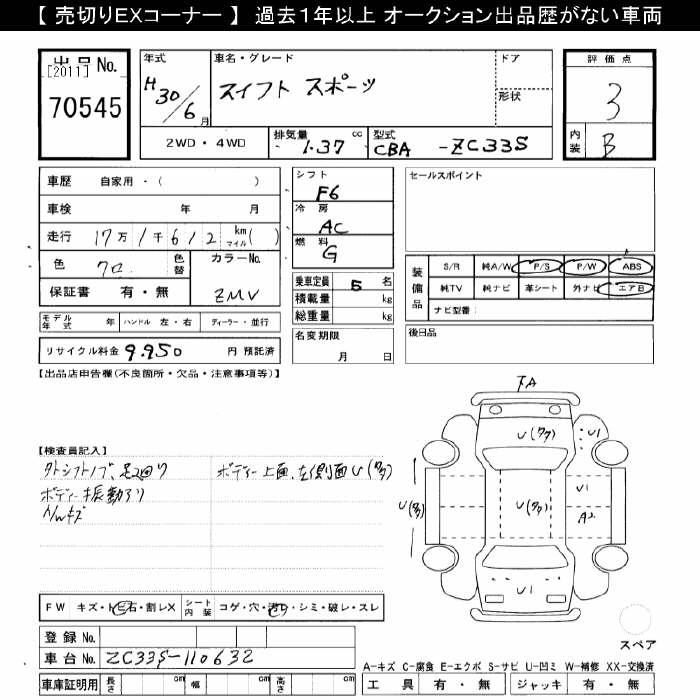 【 売切りEXコーナー 】 過去1年以上 オークション出品歴がない車両
出品 No.
[2011]
70545
年式 H30/6月
車名・グレード スイフト スポーツ
ドア
形状
評価点 3
内装 B
2WD・4WD
排気量 1.37 cc
型式 CBA -ZC33S
車歴 自家用・( )
車検 年 月
走行 17万1千612 km マイル( )
色 クロ 色替
カラーNo. ZMV
保証書 有・無
シフト F6
冷房 AC
燃料 G
セールスポイント
乗車定員 5 名
積載量 kg
総重量 kg
装備品 S/R 純A/W P/S P/W ABS
純TV 純ナビ 革シート 外ナビ エアB
ナビ型番:
モデル年式 年 ハンドル 左・右 ディーラー・並行
名変期限 月 日
後日品
リサイクル料金 9.950 円 預託済
【出品店申告欄(不良箇所・欠品・注意事項等)】
【検査員記入】
外シフトノブ、足回り
ボディー振動アリ
A/Wキズ
ボディー上面、左側面U(多)
FA
U(多)
U1
U(多)
U(多)
U1
A2
U1
FW キズ・トビ石・割レX
シート内装 コゲ・穴・汚レ・シミ・破レ・スレ
登録 No.
車台 No. ZC33S-110632
車庫証明用 長さ cm 幅 cm 高さ cm
スペア
A-キズ C-腐食 E-エクボ S-サビ U-凹ミ W-補修 XX-交換済
工具 有・無 ジャッキ 有・無